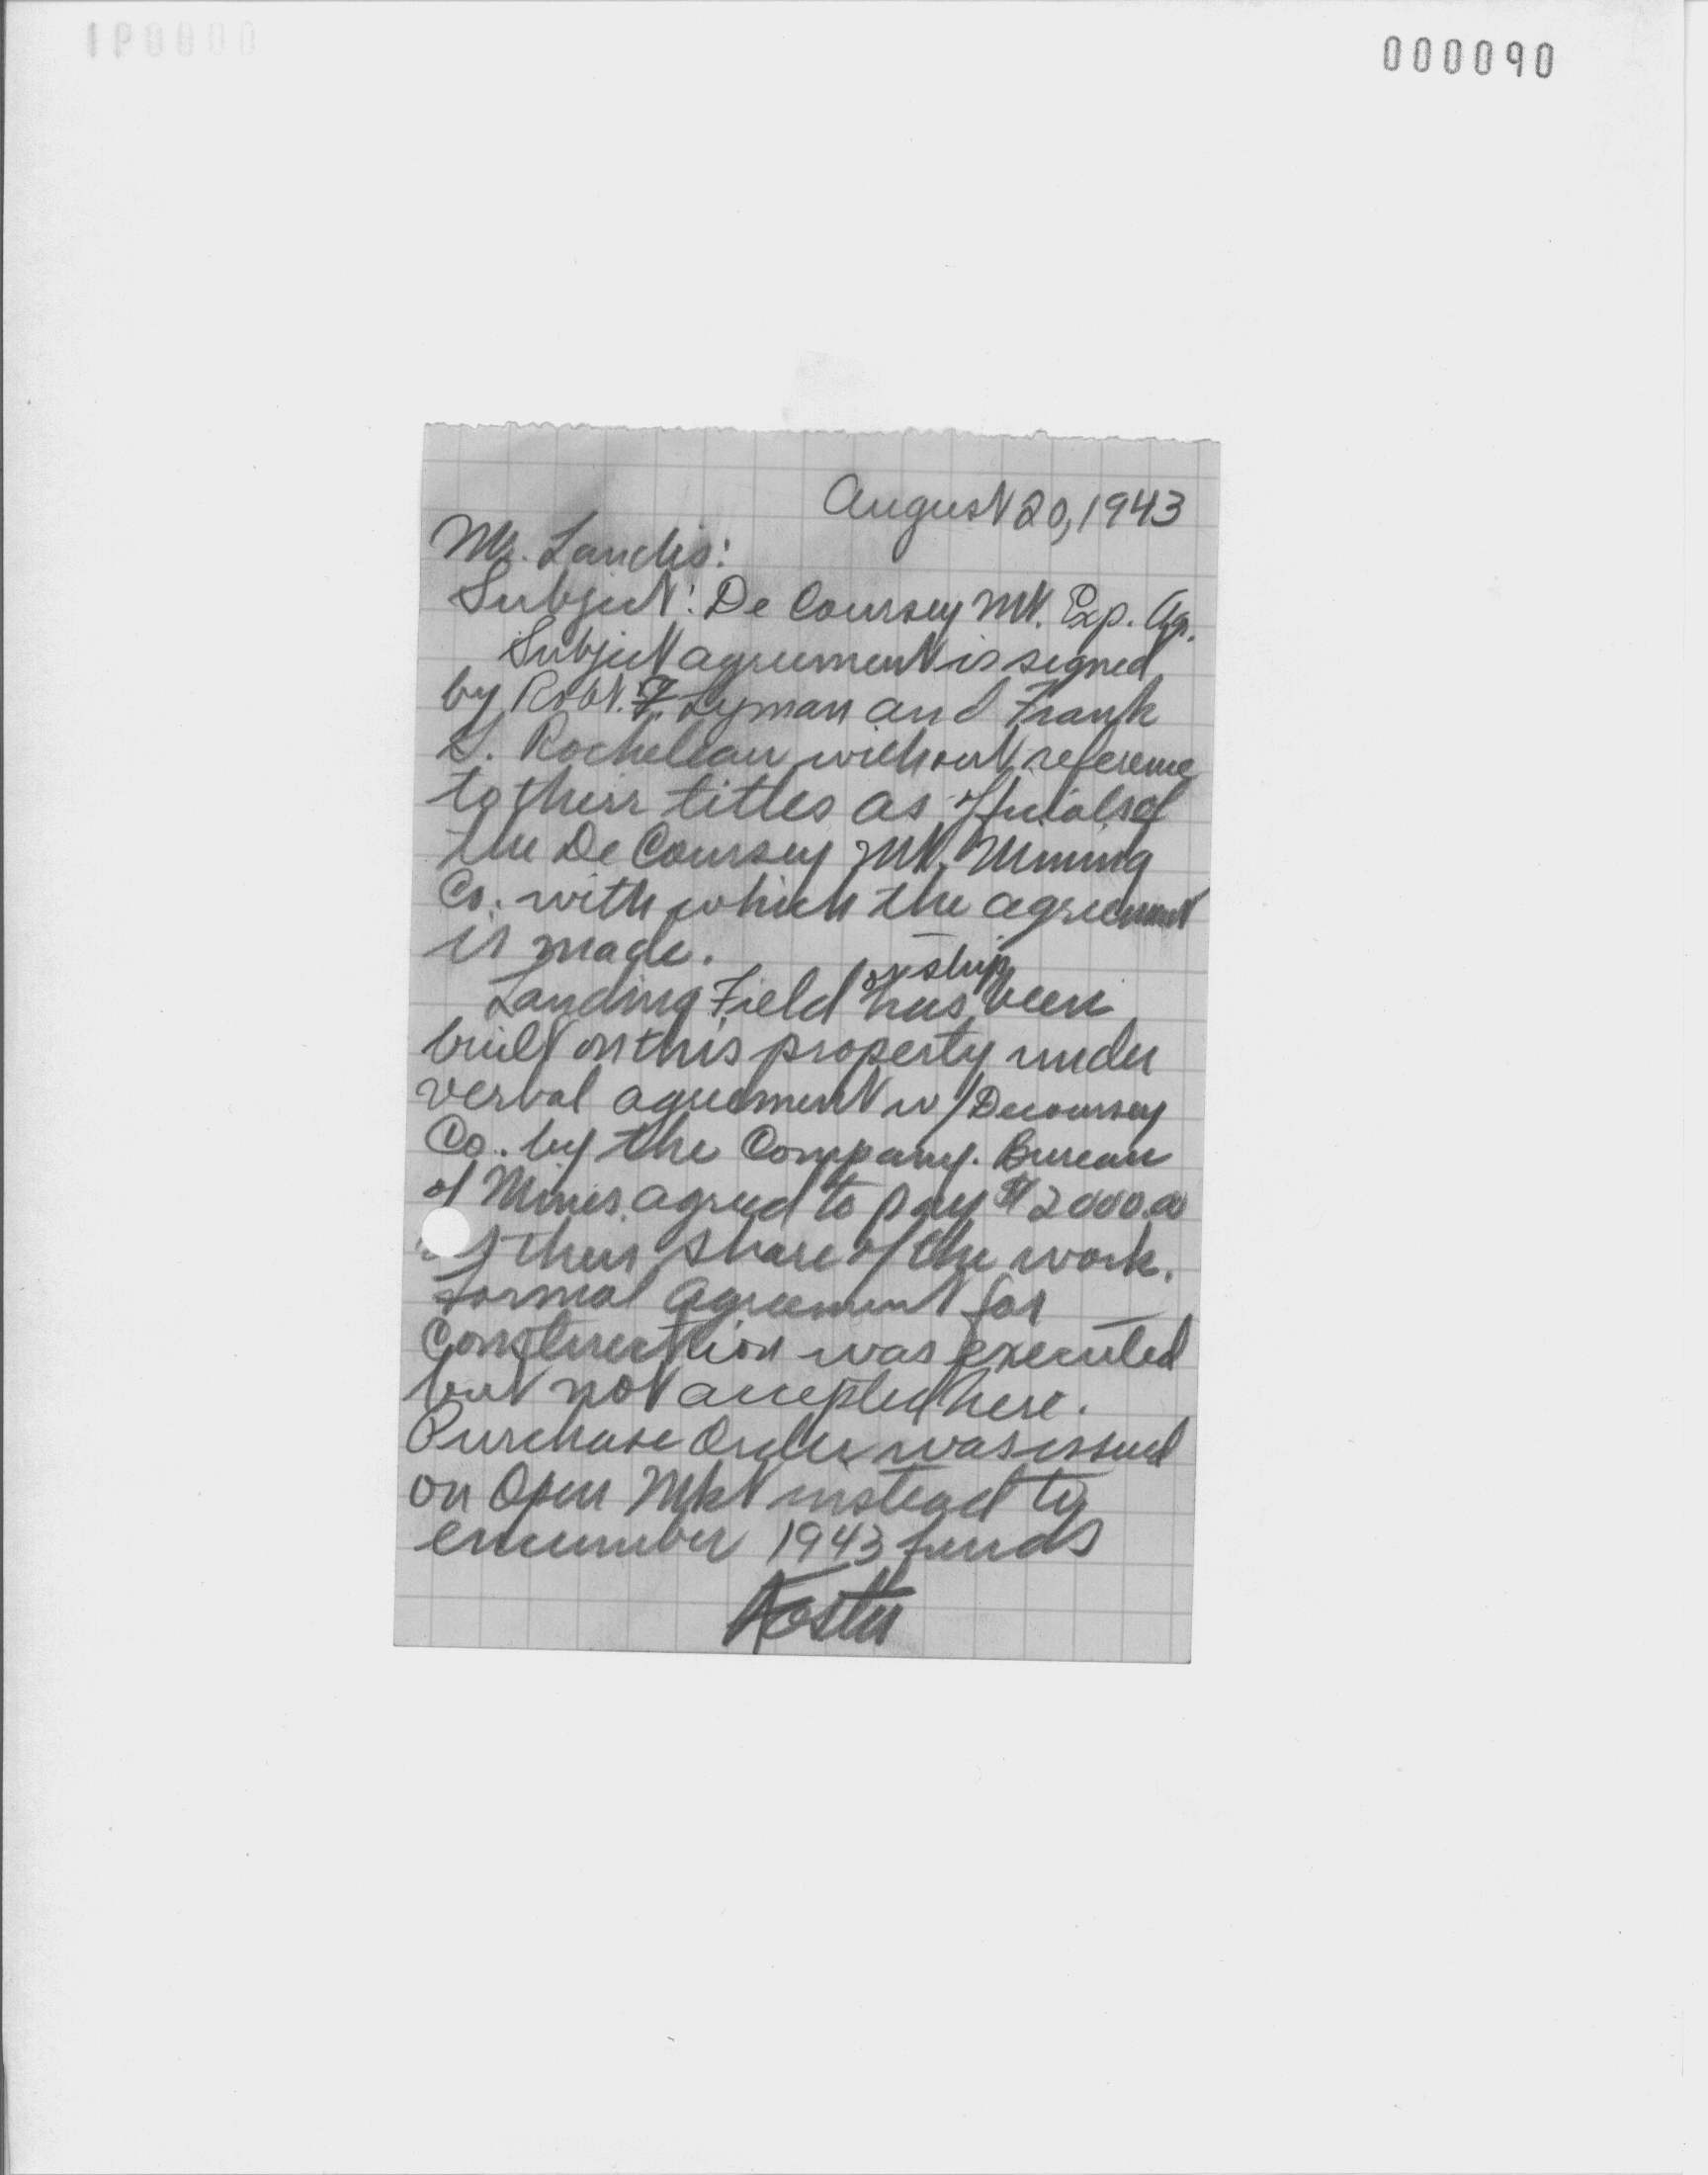 000090
August 20, 1943
Mr. Landis:
Subject: De Coursey Mt. Exp. Ag.
Subject agreement is signed
by Robt. F. Lyman and Frank
S. Rocheleau without reference
to their titles as officials of
the De Coursey Mt. Mining
Co. with which the agreement
is made.
or strip
Landing Field has been
built on this property under
verbal agreement w/ Decoursey
Co. by the Company. Bureau
of Mines agreed to pay $2000.00
their share of the work.
Formal agreement for
construction was executed
but not accepted here.
Purchase Order was issued
on Open Mkt instead to
encumber 1943 funds
Foster